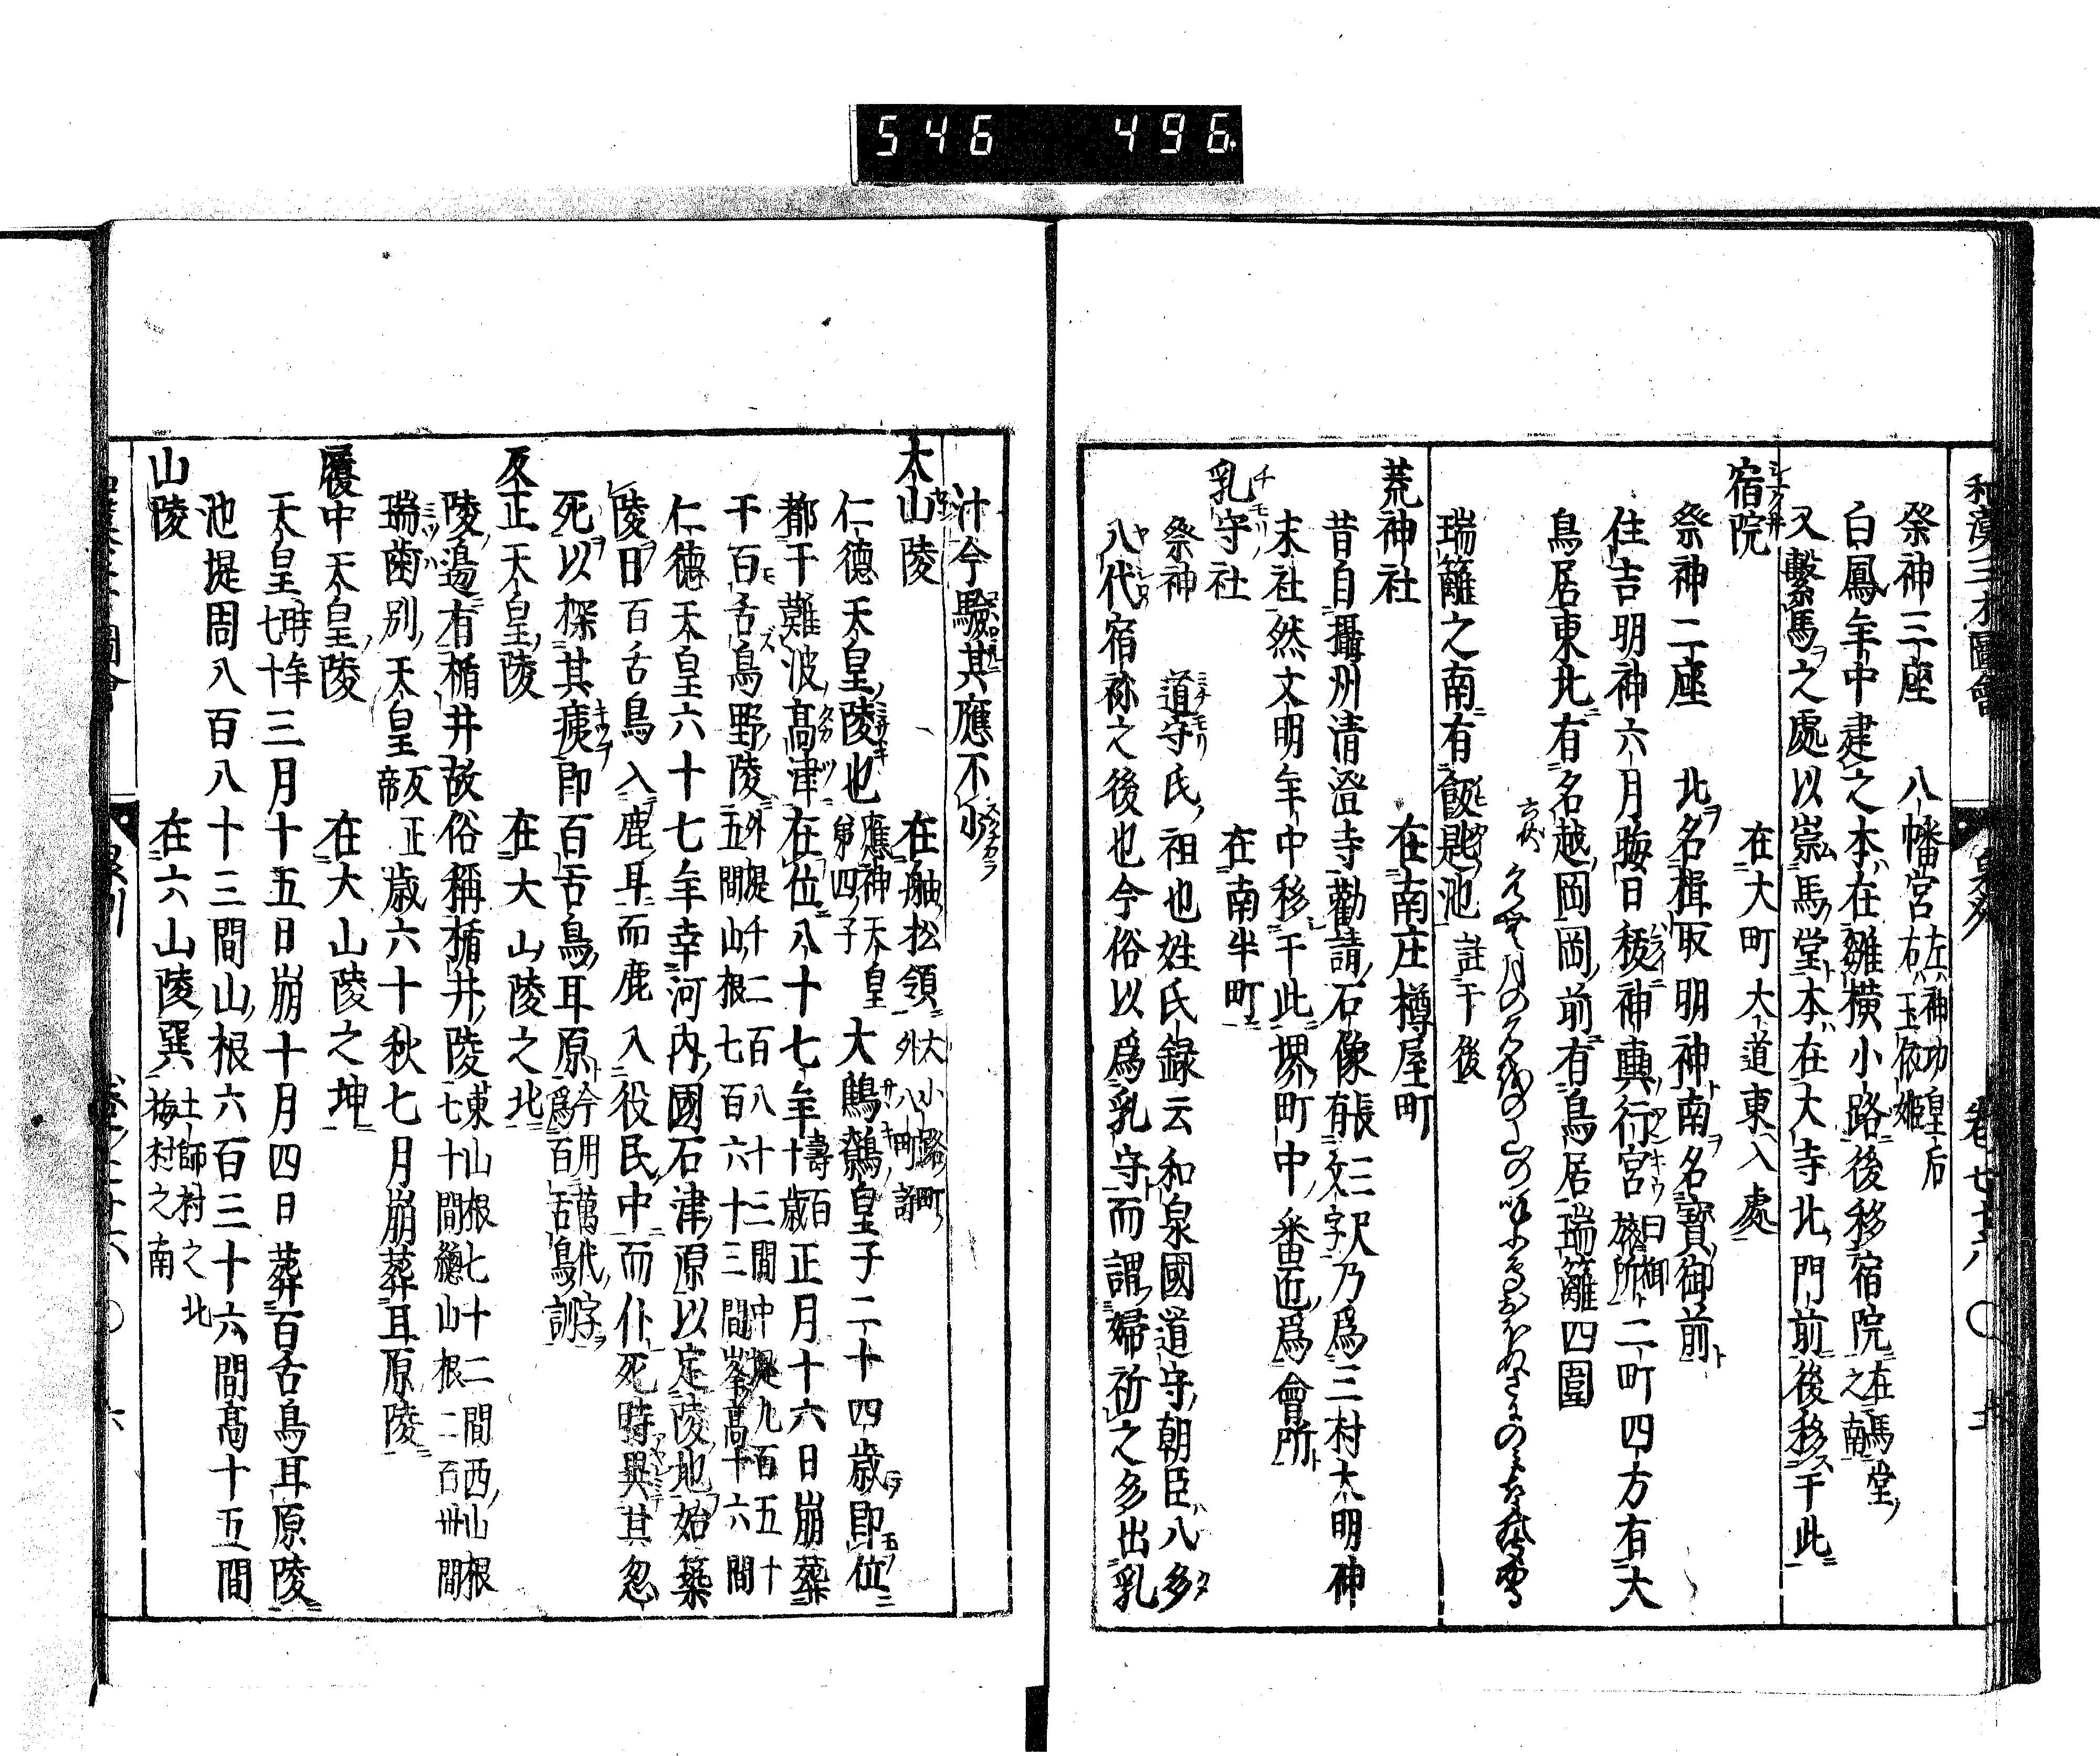 546 496
和漢三才圖會 泉州 卷七十六
祭神三座 八幡宮 左神功皇后 右玉依姬
白鳳年中建之本在雛橫小路後移宿院 在馬堂之南
又繫馬之處以崇馬堂本在大寺北門前後移于此
宿院 在大町大道東入處
祭神二座 北名楫取明神南名寶御前
住吉明神六月晦日秡神輿行宮 曰御旅所 二町四方有大
鳥居東北有名越岡岡前有鳥居瑞籬四圍
瑞籬之南有飯匙池 註于後
荒神社 在南庄樽屋町
昔自攝州清澄寺勸請石像 有長三尺文字 乃爲三村大明神
末社然文明年中移于此堺町中番匠爲會所
乳守社 在南半町
祭神 道守氏祖也姓氏録云和泉國道守朝臣八多
八代宿祢之後也今俗以爲乳守而謂婦祈之多出乳
汁今驗其應不少
大山陵 在舳松領 大小路町外八町許
仁德天皇陵也 應神天皇第四子 大鷦鷯皇子二十四歳即位
都于難波高津在位八十七年 壽百十歳 正月十六日崩葬
于百舌鳥野陵 外堤千二百八十三間中堤九百五十五間山根七百六十三間峯高十六間
仁德天皇六十七年幸河内國石津原以定陵地始築
陵日百舌鳥入鹿耳而鹿入役民中而仆死時異其忽
死以探其痍即百舌鳥耳原 今用萬代字爲百舌鳥訓
反正天皇陵 在大山陵之北
陵邉有楯井故俗稱楯井陵 東山根七十二間西山根七十間總山根二百卅間
瑞歯別天皇 反正帝 歳六十秋七月崩葬耳原陵
履中天皇陵 在大山陵之坤
天皇 時年七十 三月十五日崩十月四日葬百舌鳥耳原陵
池堤周八百八十三間山根六百三十六間高十五間
山陵 在六山陵巽 土師村之北梅村之南